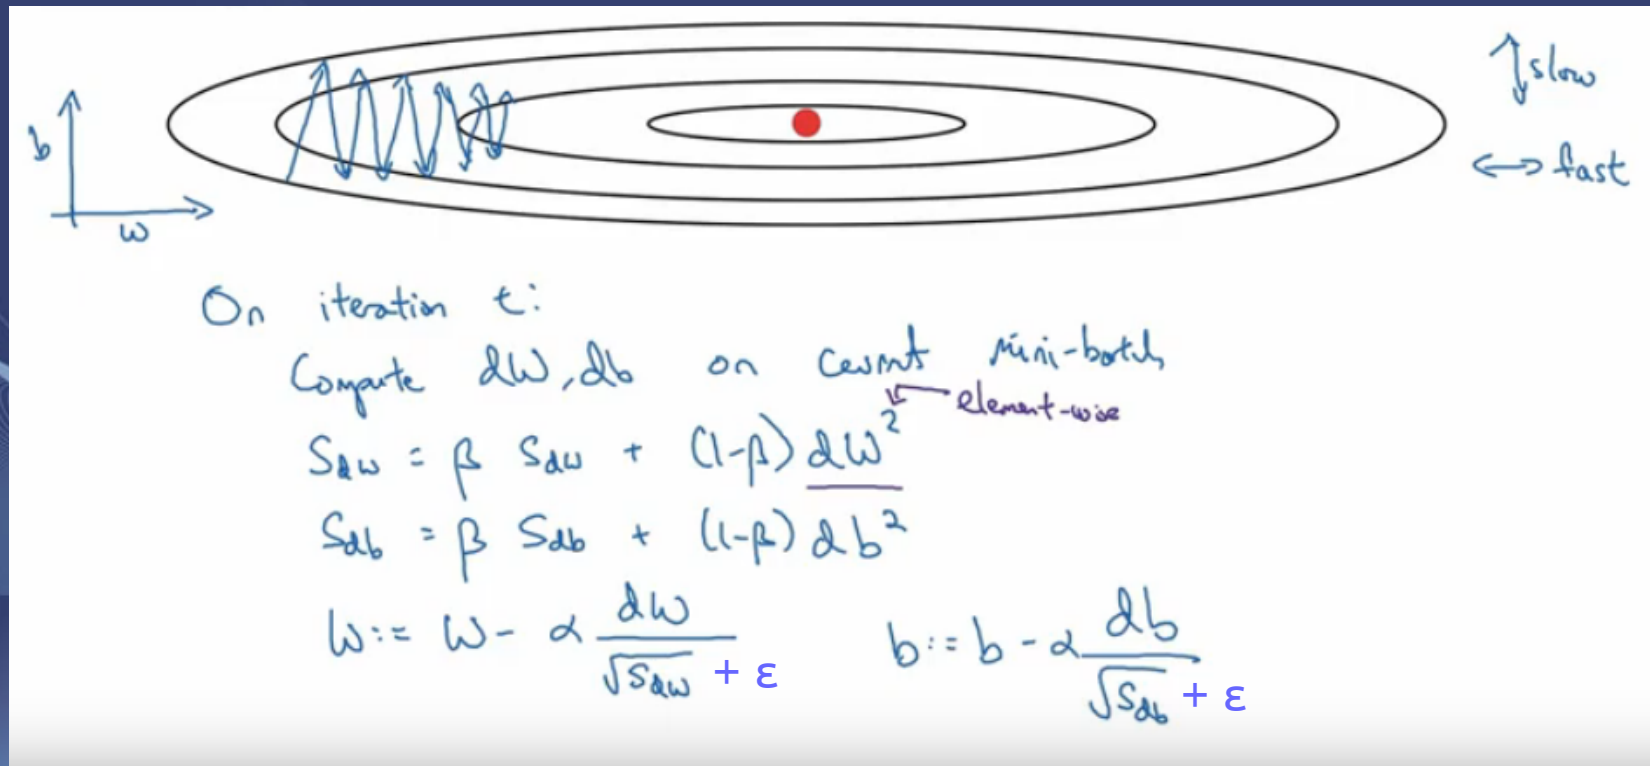 b
w
slow
fast
On iteration t:
Compute dW, db on current mini-batch
element-wise
Sdw = β Sdw + (1-β) dW²
Sdb = β Sdb + (1-β) db²
W := W - α dW / √Sdw + ε
b := b - α db / √Sdb + ε